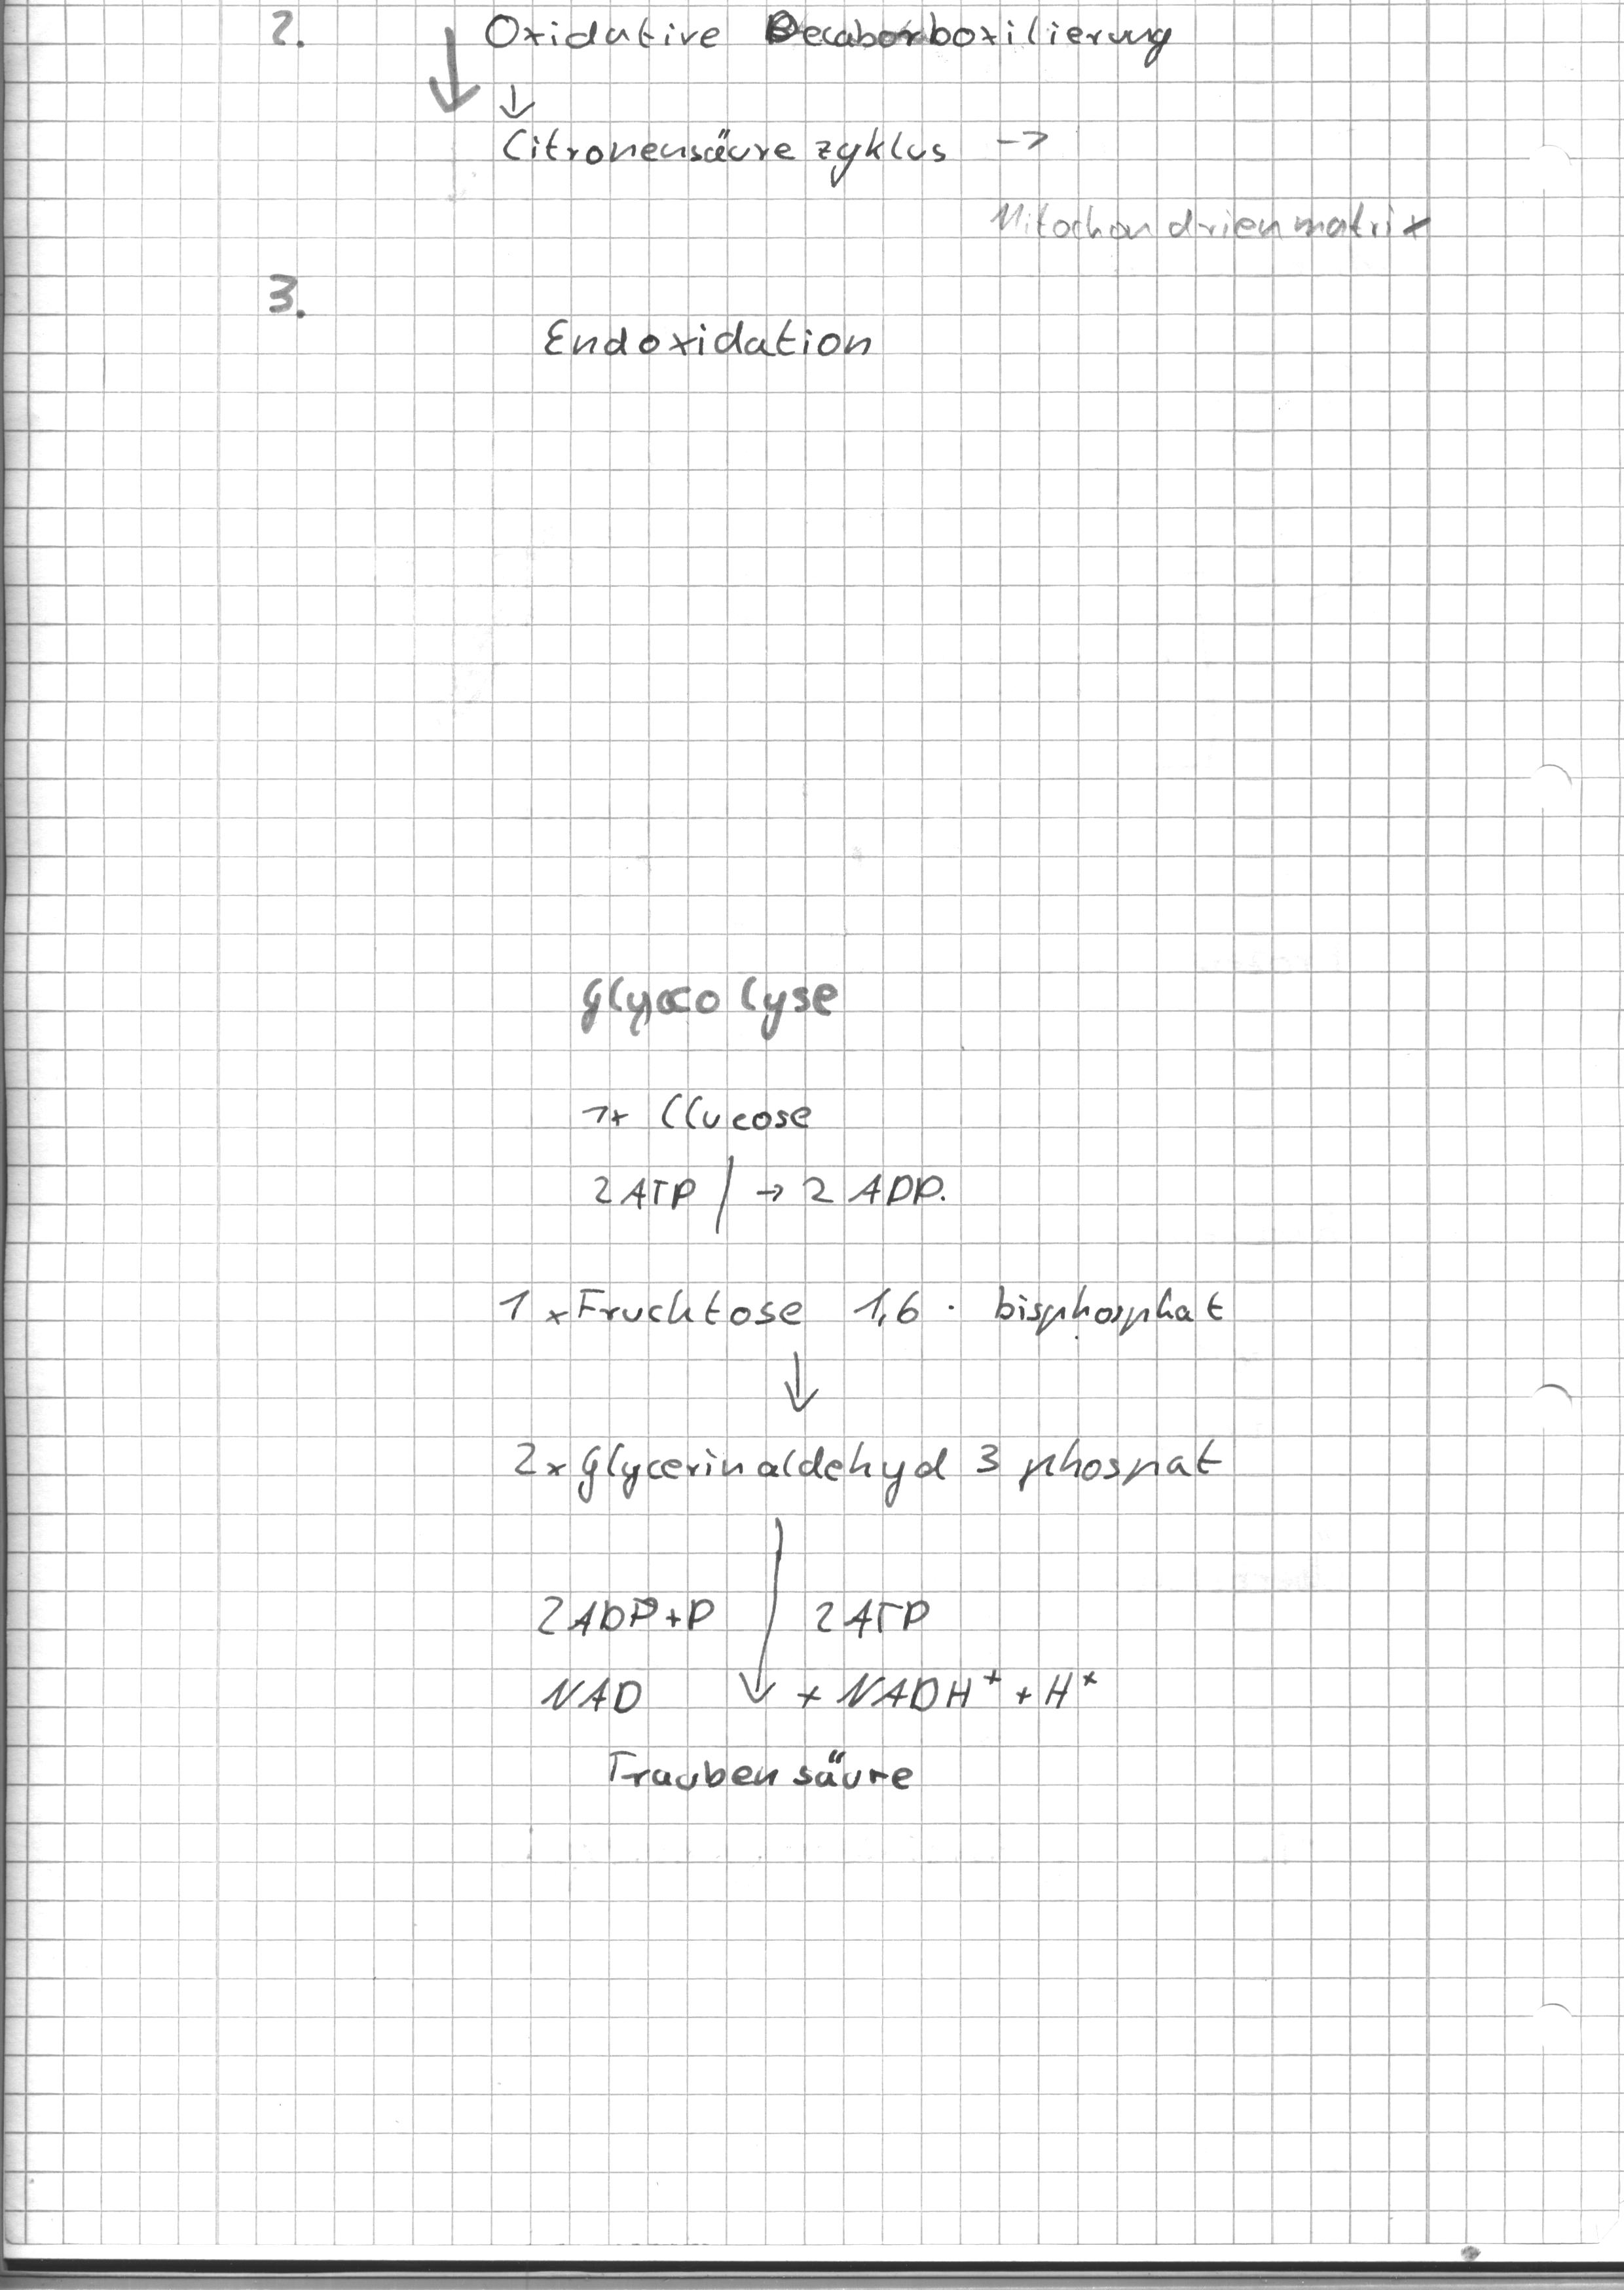 2. Oxidative Decaborboxilierung
↓ ↓
Citronensäurezyklus ->
Mitochondrienmatrix
3.
Endoxidation
Glykolyse
1x Glucose
2 ATP / → 2 ADP.
1 x Fruchtose 1,6 · bisphosphat
↓
2x Glycerinaldehyd 3 phospnat
2 ADP + P ↓ 2 ATP
NAD + NADH⁺ + H⁺
Traubensäure